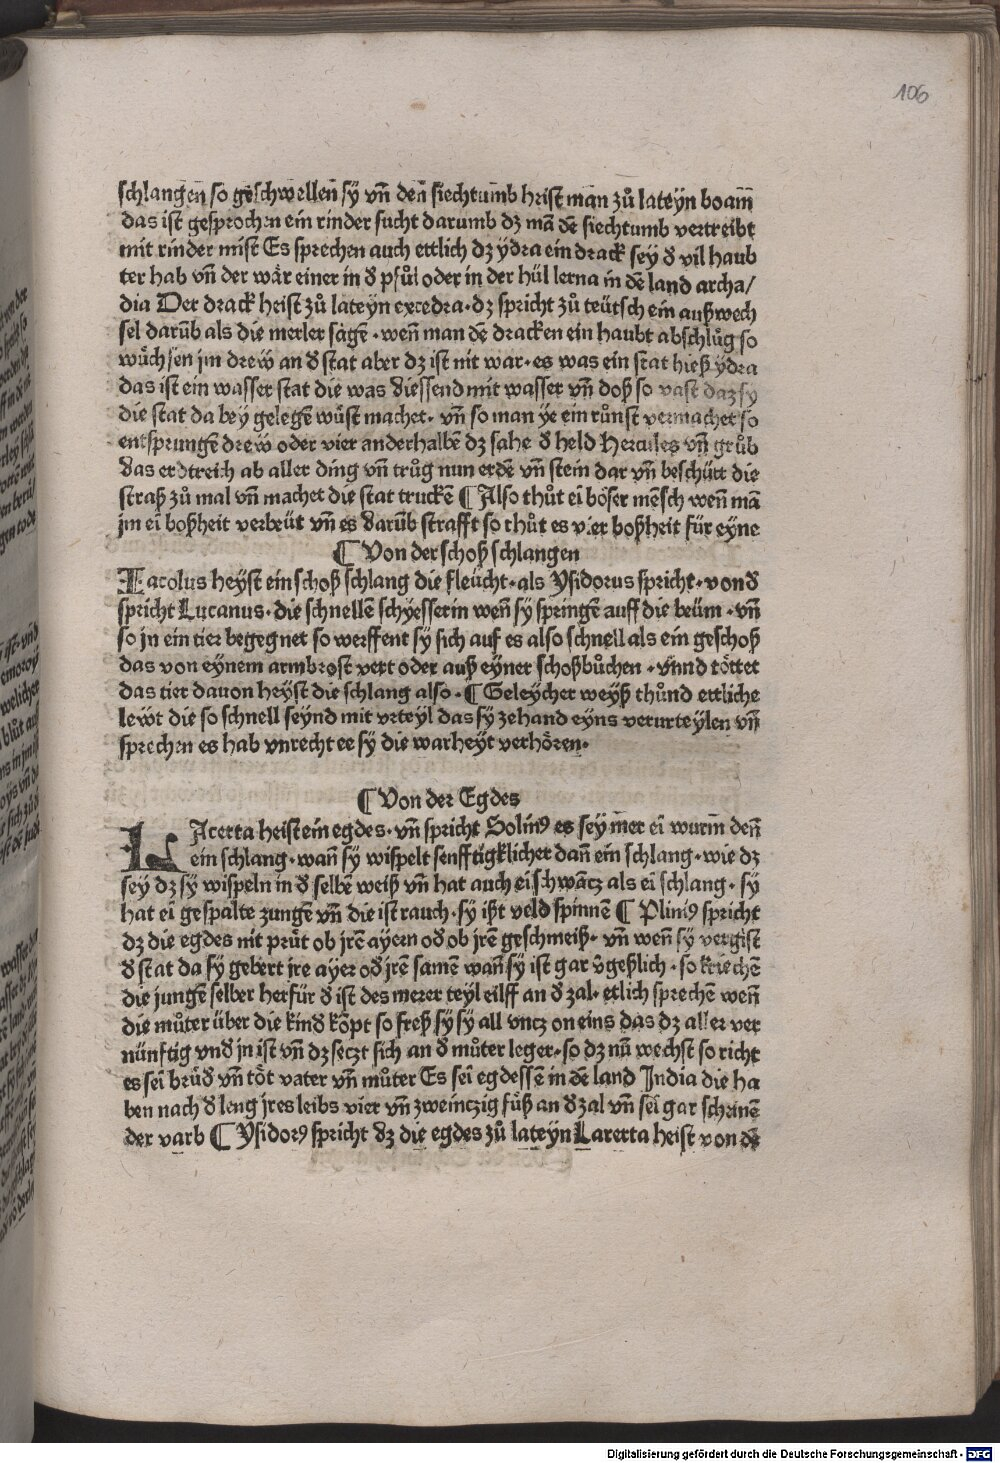 106
schlangen so geschwellen sÿ vñ den siechtumb heist man zů lateÿn boam̄
das ist gesprochen ein rinder sucht darumb dz mā dē siechtumb vertreibt
mit rinder mist Es sprechen auch ettlich dz ÿdra ein drack seÿ d̕ vil haub
ter hab vñ der wår einer in d̕ pfůl oder in der hül lerna in dē land archa/
dia Der drack heist zů lateÿn excedra · dz spricht zů teütsch ein außwech
sel darūb als die merler sagē · weñ man dē dracken ein haubt abschlůg so
wůchsen jm dreẅ an d̕ stat aber dz ist nit war · es was ein stat hieß ÿdra
das ist ein wasser stat die was diessend mit wasser vñ doß so vast daz sÿ
die stat da beÿ gelegē wůst machet · vñ so man ÿe ein růnst vermachet so
entsprungē dreẅ oder vier anderhalbē dz sahe d̕ held Hercules vñ grůb
das erdtreich ab aller ding vñ trůg nun erdē vñ stein dar vñ beschütt die
straß zů mal vñ machet die stat truckē ¶ Also thůt eī böser mēsch weñ mā
jm eī boßheit verbeüt vñ es darūb strafft so thůt es vier boßheit für eÿne
¶ Von der schoß schlangen
Iacolus heÿst ein schoß schlang die fleücht · als Ysidorus spricht · von d̕
spricht Lucanus · die schnellē schÿesserin weñ sÿ springē auff die beüm · vñ
so jn ein tier begegnet so werffent sÿ sich auf es also schnell als ein geschoß
das von eÿnem armbrost vert oder auß eÿner schoßbůchen · vnnd töttet
das tier dauon heÿst die schlang also · ¶ Geleÿcher weÿß thůnd ettliche
leẅt die so schnell seÿnd mit vrteÿl das sÿ zehand eÿns verurteÿlen vñ
sprechen es hab vnrecht ee sÿ die warheÿt verhören ·
¶ Von der Egdes
LAcerta heist ein egdes · vñ spricht Solinꝰ es seÿ mer eī wurm̄ deñ
ein schlang · wañ sÿ wispelt senfftigklicher dañ ein schlang · wie dz
seÿ dz sÿ wispeln in d̕ selbē weiß vñ hat auch eī schwācz als eī schlang · sÿ
hat eī gespalte zungē vñ die ist rauch · sÿ ißt veld spinnē ¶ Plinꝰ spricht
dz die egdes nit prüt ob jrē aÿern od̕ ob jrē geschmeiß · vñ weñ sÿ vergist
d̕ stat da sÿ gebert jre aÿer od̕ jrē samē wañ sÿ ist gar v̄geßlich · so kriechē
die jungē selber herfür d̕ ist des merer teÿl eilff an d̕ zal · etlich sprechē weñ
die můter über die kind kōpt so freß sÿ sÿ all vncz on eins das dz aller ver
nünftig vnd̕ jn ist vñ dz seczt sich an d̕ můter leger · so dz nū wechst so richt
es sei brüd̕ vñ töt vater vñ můter Es seī egdessē in dē land India die ha
ben nach d̕ leng jres leibs vier vñ zweinczig füß an d̕ zal vñ seī gar schönē
der varb ¶ Ysidorꝰ spricht dz die egdes zů lateÿn Lacerta heist von dē
Digitalisierung gefördert durch die Deutsche Forschungsgemeinschaft - DFG